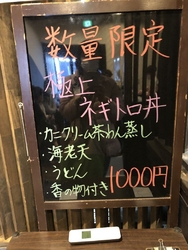 数量限定
極上
ネギトロ丼
・カニクリーム味わん蒸し
・海老天
・うどん
・香の物付き
1000円